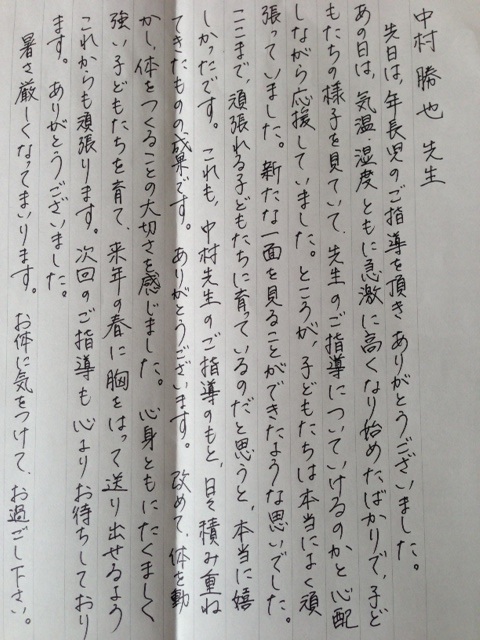 中村 勝也 先生
先日は、年長児のご指導を頂きありがとうございました。
あの日は、気温・湿度ともに急激に高くなり始めたばかりで、子ど
もたちの様子を見ていて、先生のご指導についていけるのかと心配
しながら応援していました。ところが、子どもたちは本当によく頑
張っていました。新たな一面を見ることができたような思いでした。
ここまで、頑張れる子どもたちに育っているのだと思うと、本当に嬉
しかったです。これも、中村先生のご指導のもと、日々積み重ね
てきたものの成果です。ありがとうございます。改めて、体を動
かし、体をつくることの大切さを感じました。心身ともにたくましく
強い子どもたちを育て、来年の春に胸をはって送り出せるよう
これからも頑張ります。次回のご指導も心よりお待ちしており
ます。ありがとうございました。
暑さ厳しくなってまいります。お体に気をつけて、お過ごし下さい。